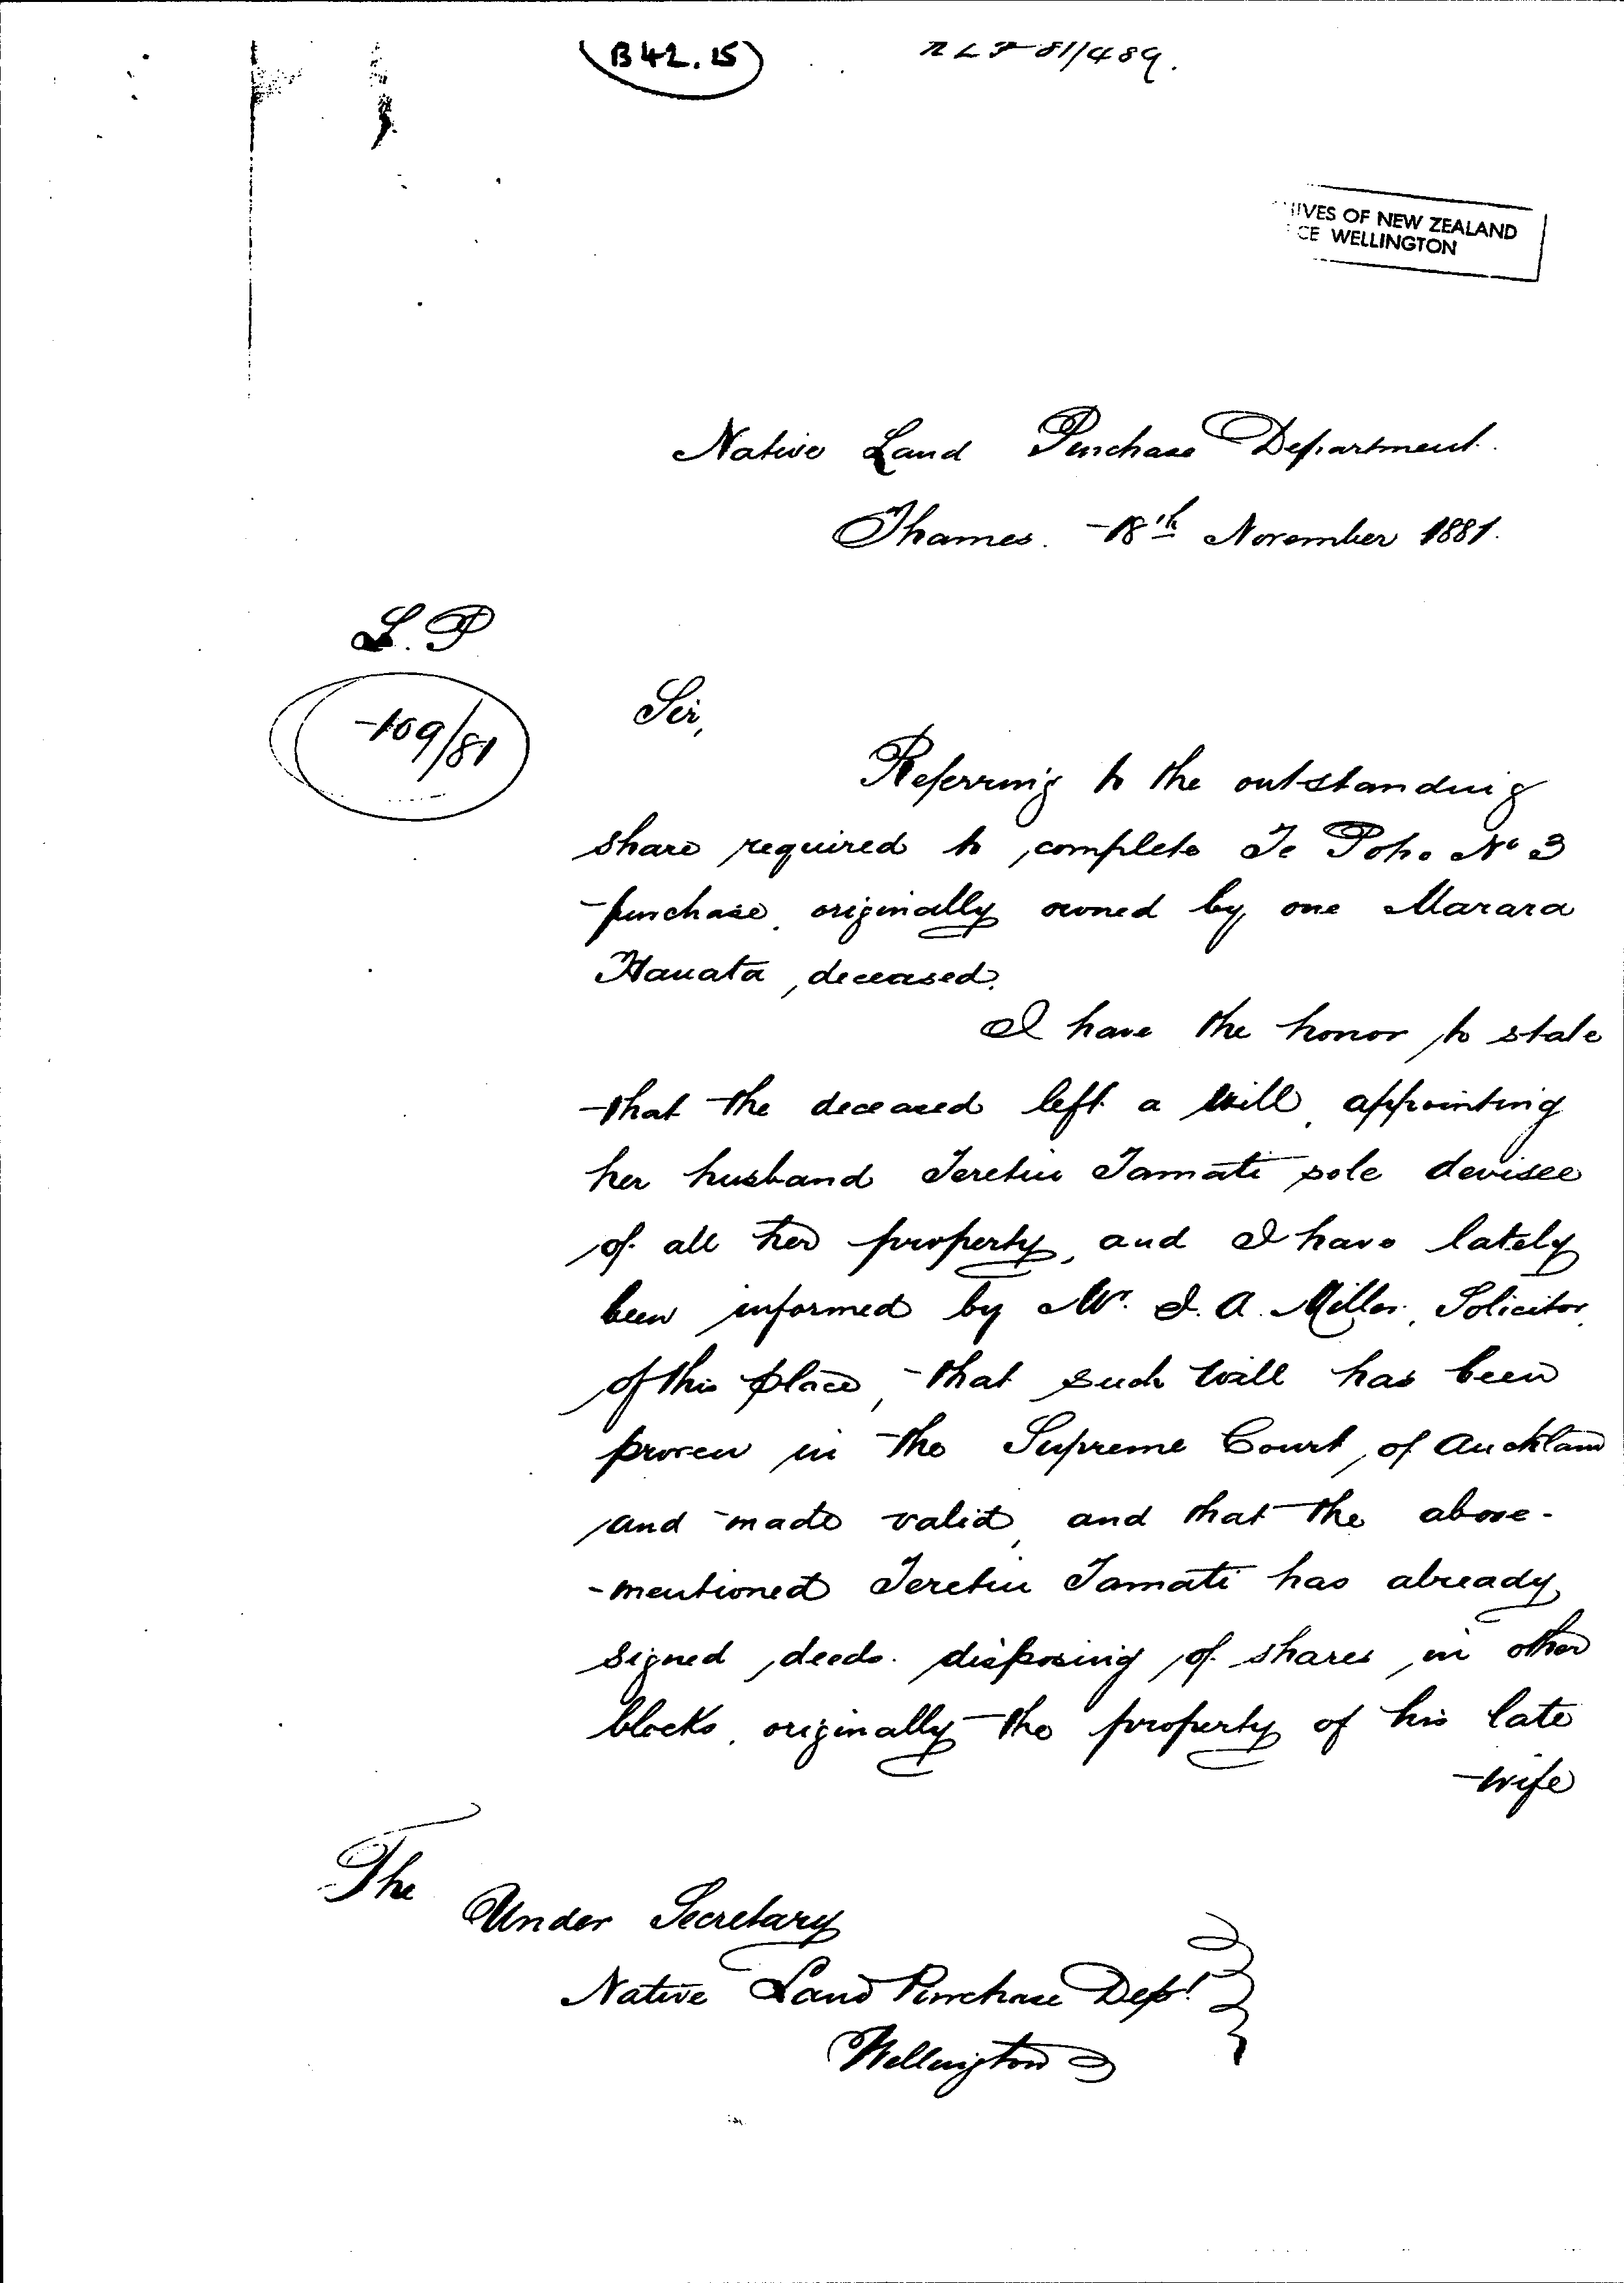 B 42. 15
NLP 81/489.
IVES OF NEW ZEALAND
CE WELLINGTON
Native Land Purchase Department.
Thames. 18th November 1881.
L.P
109/81
Sir,
Referring to the outstanding
share required to complete Te Poho No 3
purchase, originally owned by one Marara
Hauata, deceased.
I have the honor to state
that the deceased left a will, appointing
her husband Teretiu Tamati sole devisee
of all her property, and I have lately
been informed by Mr. J. A. Miller, Solicitor,
of this place, that such will has been
proven in the Supreme Court, of Auckland
and made valid, and that the above-
-mentioned Teretiu Tamati has already
signed deeds disposing of shares in other
blocks, originally the property of his late
wife
The
Under Secretary
Native Land Purchase Dept.
Wellington